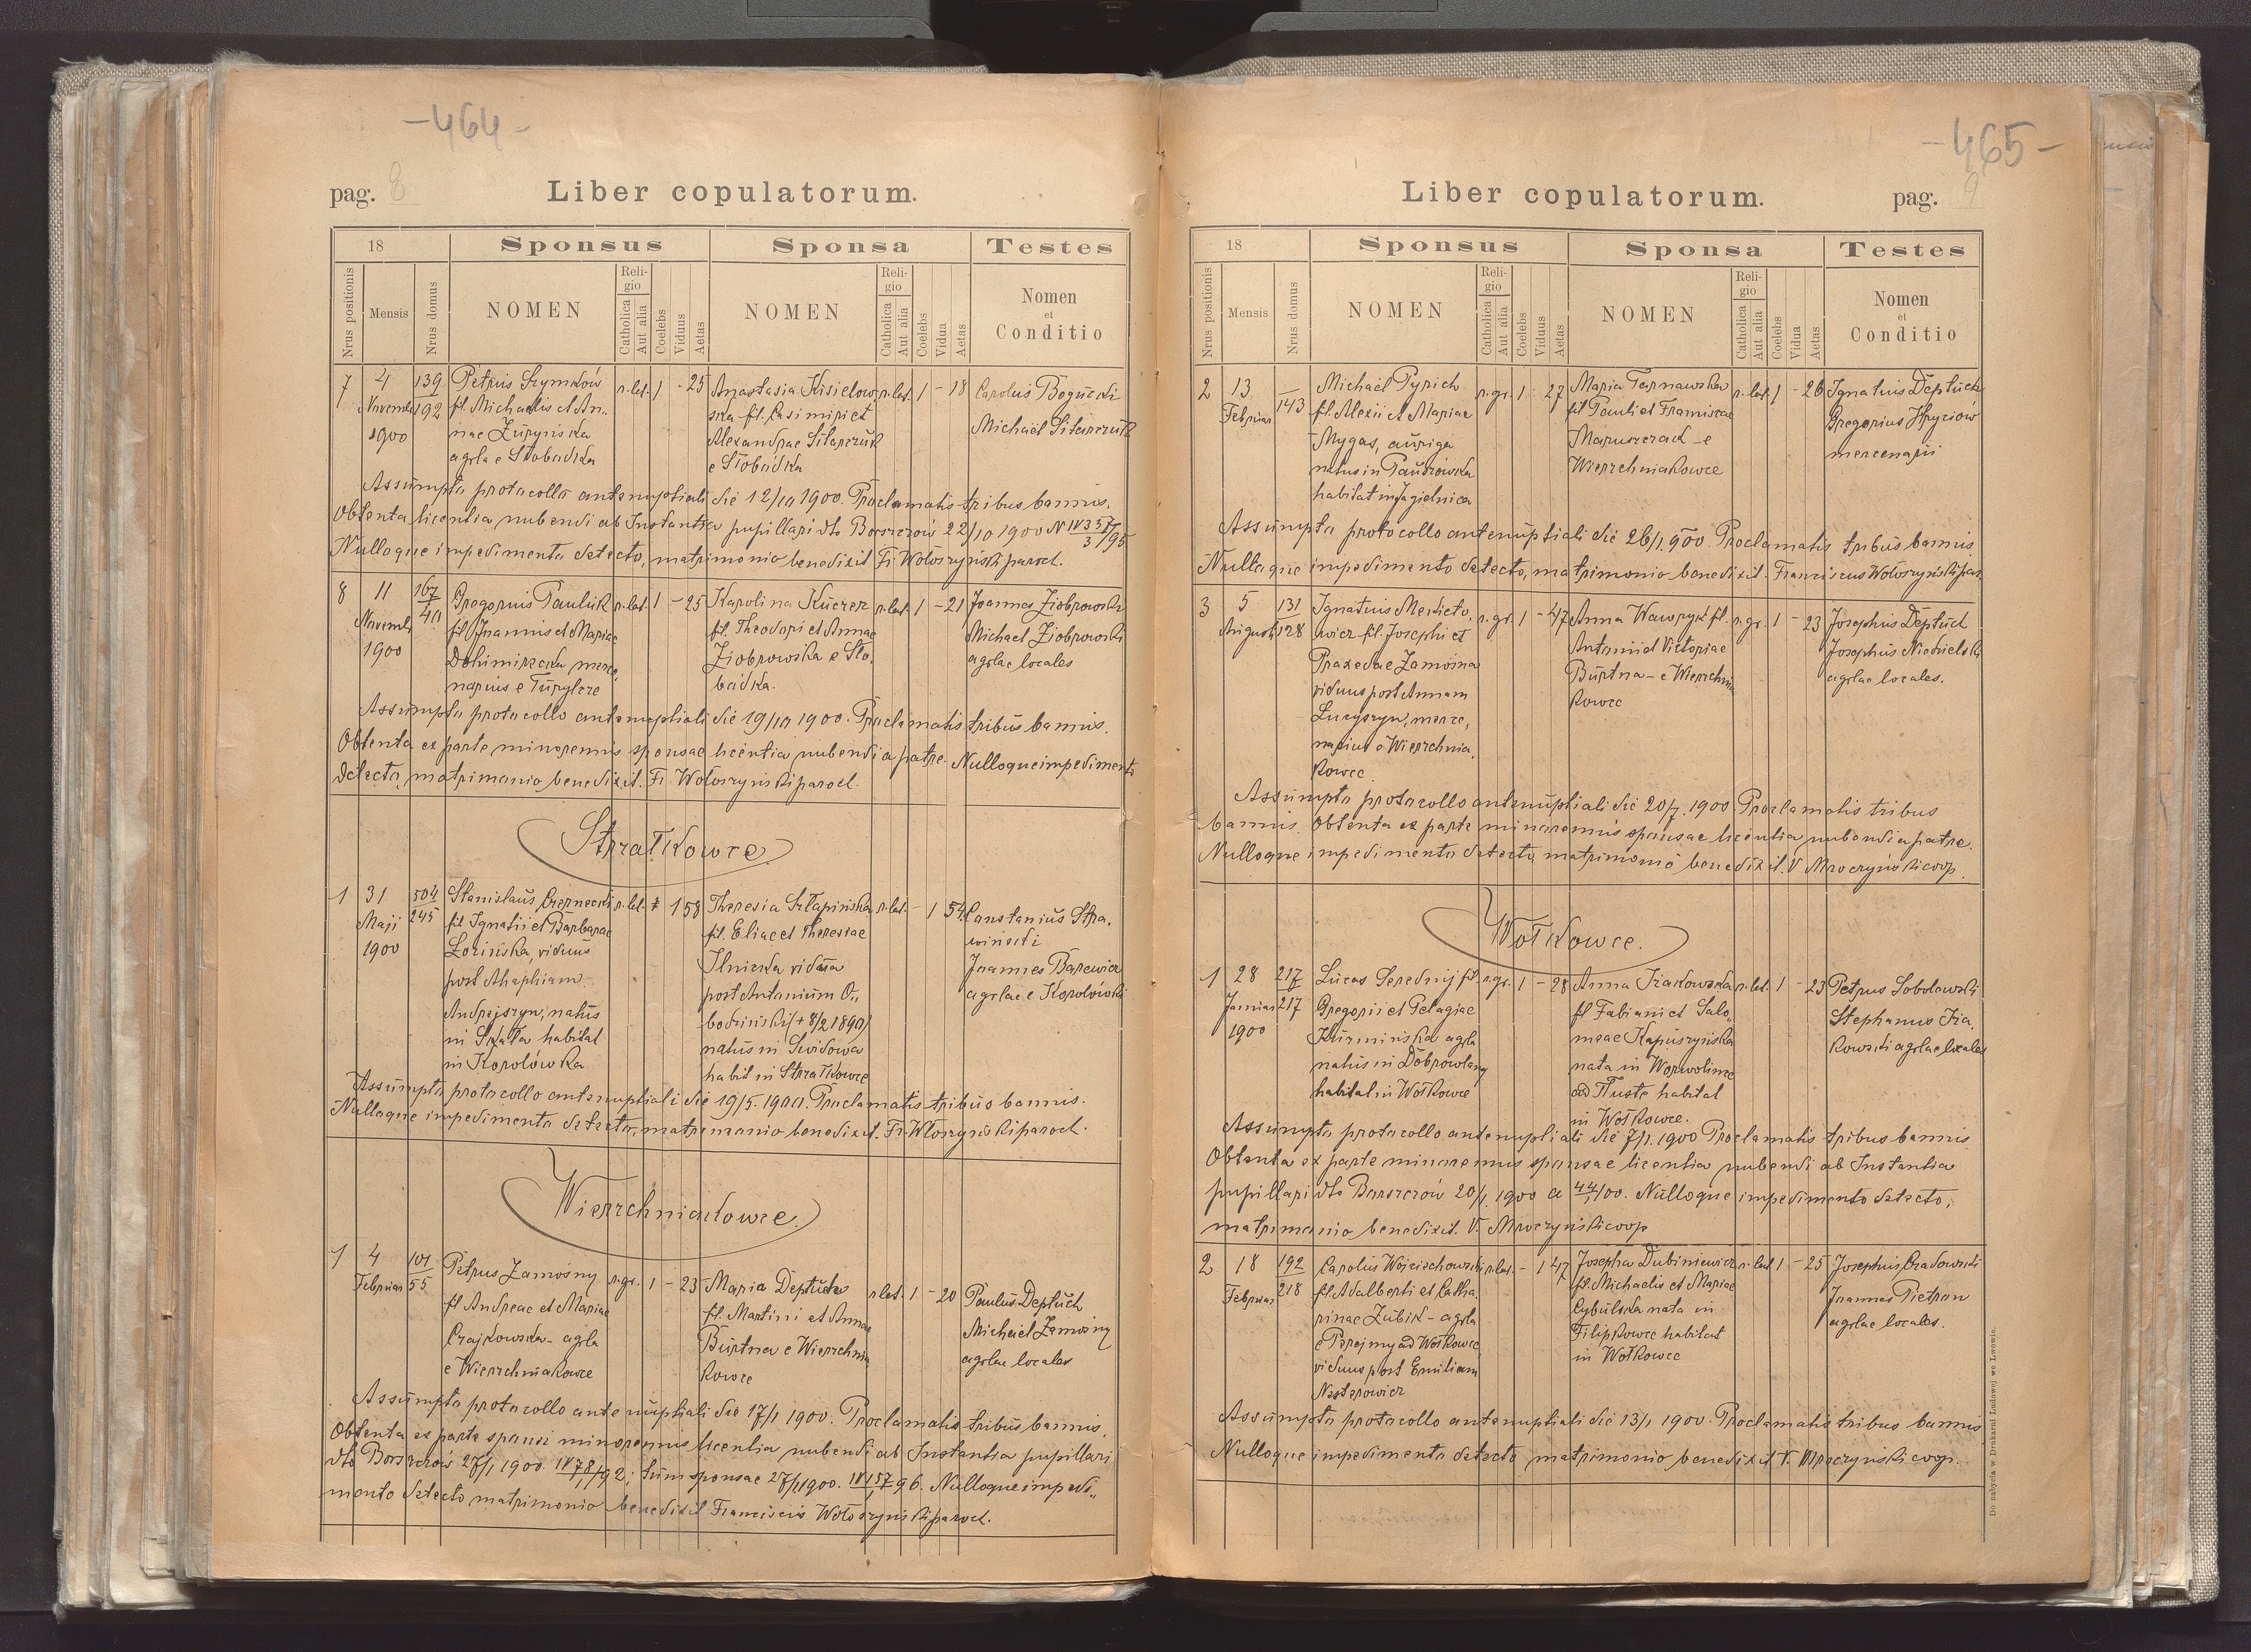 -464-
pag. 8
Liber copulatorum.
18
Sponsus
Sponsa
Testes
Nrus positionis
Mensis
Nrus domus
NOMEN
Religio
Catholica
Aut alia
Coelebs
Viduus
Aetas
NOMEN
Religio
Catholica
Aut alia
Coelebs
Vidua
Aetas
Nomen
et
Conditio
7
4
Novemb
1900
139
192
Petrus Szymków
fil. Michaelis et An„
nae Żuryńska
agrla e Słobudka
r. lat. 1 - 25
Anastasia Kisielow
ska fil. Casimiri et
Alexandrae Sitarczuk
e Słobudka
r. lat. 1 - 18
Carolus Bogucki
Michael Sitarczuk
Assumpto protocollo antenuptiali die 12/10 1900. Proclamatis tribus bannis.
Obtenta licentia nubendi ab Instantia pupillari dto Borszczów 22/10 1900 N IV 357/3/95
Nulloque impedimento detecto, matrimonio benedixit Fr. Wołoszyński paroch.
8
11
Novemb
1900
167
40
Gregorius Pauluk
fil. Joannis et Mariae
Dohimirecka merce„
narius e Turylcze
r. lat. 1 - 25
Karolina Kuczer
fil. Theodori et Annae
Ziobrowska e Sło„
budka.
r. lat. 1 - 21
Joannes Ziobrowski
Michael Ziobrowski
agrlae locales
Assumpto protocollo antenuptiali die 19/10 1900. Proclamatis tribus bannis.
Obtenta ex parte minorennis sponsae licentia nubendi a patre. Nulloque impedimento
detecto, matrimonio benedixit. Fr. Wołoszyński paroch.
Strzałkowce.
1
31
Maji
1900
504
245
Stanislaus Czernecki
fil. Ignatii et Barbarae
Łozińska, viduus
post Ahaphiam
Andrejszyn, natus
in Skała habitat
in Korolówka
r. lat. 1 58
Theresia Szłapińska
fil. Eliae et Theresiae
Ilnicka vidua
post Antonium O„
bodziński (+ 8/2 1890)
natus in Swidowa
habit in Strzałkowce
r. lat. - 1 54
Constanius Stra„
wiński
Joannes Barewicz
agrlae e Korolówki
Assumpto protocollo antenuptiali die 19/5. 1900. Proclamatis tribus bannis.
Nulloque impedimento detecto, matrimonio benedixit. Fr. Włoszyński paroch.
Wierzchniakowce.
1
4
Februar
101
55
Petrus Zamośny
fil Andreae et Mariae
Czajkowska - agrla
e Wierzchniakowce
r. gr. 1 - 23
Maria Deptuch
fil. Martini et Annae
Burtna e Wierzchnia
kowce
r lat. 1 - 20
Paulus Deptuch
Michael Zamośny
agrlae locales
Assumpto protocollo antenuptiali die 17/1 1900. Proclamatis tribus bannis.
Obtenta ex parte sponsi minorennis licentia nubendi ab Instantia pupillari
dto Borszczów 27/1 1900. IV 78/92; tum sponsae 27/1 1900. IV 157 96. Nulloque impedi„
mento detecto matrimonio benedixit Franciscus Wołoszyński paroch.
-465-
Liber copulatorum.
pag. 9
18
Sponsus
Sponsa
Testes
Nrus positionis
Mensis
Nrus domus
NOMEN
Religio
Catholica
Aut alia
Coelebs
Viduus
Aetas
NOMEN
Religio
Catholica
Aut alia
Coelebs
Vidua
Aetas
Nomen
et
Conditio
2
13
Februar
143
Michael Pyrich
fil. Alexii et Mariae
Mygas, auriga
natus in Pauszówka
habitat in Jagielnica
r. gr. 1 27
Maria Tarnawska
fil Pauli et Franciscae
Maruszczak - e
Wierzchniakowce
r. lat. 1 - 26
Ignatius Deptuch
Gregorius Hryciów
mercenarii
Assumpto protocollo antenuptiali die 26/1. 900. Proclamatis tribus bannis
Nulloque impedimento detecto, matrimonio benedixit. Franciscus Wołoszyński par.
3
5
August
131
128
Ignatius Mankieto„
wicz fil. Josephi et
Praxedae Zamośna
viduus post Annam
Łucyszyn, merce„
narius e Wierzchnia„
kowce
r. gr. 1 - 47
Anna Wawryk fil.
Antonii et Victoriae
Burtna - e Wierzchnia
kowce
r. gr. 1 - 23
Josephus Deptuch
Josephus Niedzielski
agrlae locales.
Assumpto protocollo antenuptiali die 20/7. 1900 Proclamatis tribus
bannis. Obtenta ex parte minorennis sponsae licentia nubendi a patre.
Nulloque impedimento detecto, matrimonio benedixit. V Mroczyński coop.
Wołkowce.
1
28
Januar
1900
217
217
Lucas Serednij fil.
Gregorii et Pelagiae
Kurmińska agrla
natus in Dobrowlany
habitat in Wołkowce
r. gr. 1 - 28
Anna Iżakowska
fil Fabiani et Salo„
meae Kapuszyńska
nata in Worwolince
ad Tłuste habitat
in Wołkowce.
r. lat. 1 - 23
Petrus Sobolewski
Stephanus Iża„
kowski agrlae locales
Assumpto protocollo antenuptiali die 7/1. 1900 Proclamatis tribus bannis
Obtenta ex parte minorennis sponsae licentia nubendi ab Instantia
pupillari dto Borszczów 20/1. 1900 a 44/1/00. Nulloque impedimento detecto,
matrimonio benedixit. V. Mroczyński coop
2
18
Februar
192
218
Carolus Wojciechowski
fil Adalberti et Catha„
rinae Zubik - agrla
e Perejmy ad Wołkowce
viduus post Emiliam
Nesterowicz
r lat. - 1 47
Josepha Dubiniewicz
fil. Michaelis et Mariae
Cybulska nata in
Filipkowce habitat
in Wołkowce
r. lat 1 - 25
Josephus Czadowski
Joannes Pietron
agrlae locales.
Assumpto protocollo antenuptiali die 13/1 1900. Proclamatis tribus bannis
Nulloque impedimento detecto matrimonio benedixit V. Mroczyński coop.
Do nabycia w Drukarni Ludowej we Lwowie.